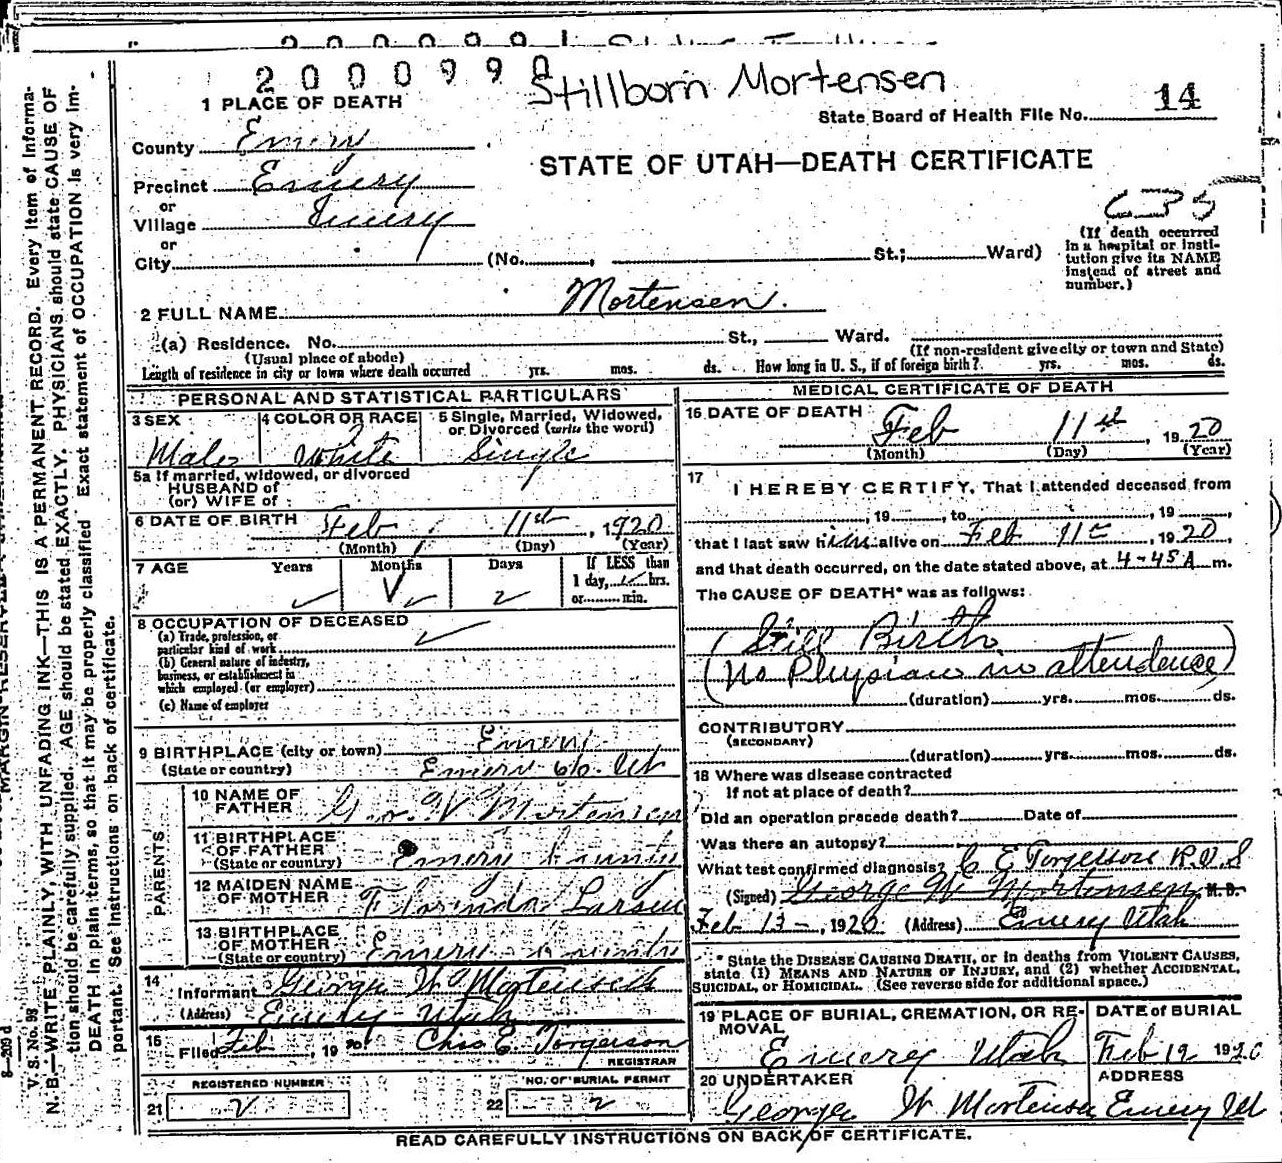 2000990
Stillborn Mortensen
1 PLACE OF DEATH
State Board of Health File No. 14
County Emery
STATE OF UTAH—DEATH CERTIFICATE
Precinct Emery
or
Village Emery
or
City (No. , St.; Ward)
(If death occurred
in a hospital or insti-
tution give its NAME
instead of street and
number.)
2 FULL NAME Mortensen.
(a) Residence. No. St., Ward.
(Usual place of abode) (If non-resident give city or town and State)
Length of residence in city or town where death occurred yrs. mos. ds. How long in U. S., if of foreign birth? yrs. mos. ds.
PERSONAL AND STATISTICAL PARTICULARS
3 SEX 4 COLOR OR RACE 5 Single, Married, Widowed,
or Divorced (write the word)
Male White Single
5a If married, widowed, or divorced
HUSBAND of
(or) WIFE of
6 DATE OF BIRTH Feb 11st, 1920
(Month) (Day) (Year)
7 AGE Years Months Days If LESS than
1 day, hrs.
or min.
8 OCCUPATION OF DECEASED
(a) Trade, profession, or
particular kind of work
(b) General nature of industry,
business, or establishment in
which employed (or employer)
(c) Name of employer
9 BIRTHPLACE (city or town) Emery
(State or country) Emery Co. Ut
PARENTS
10 NAME OF
FATHER Geo. W Mortensen
11 BIRTHPLACE
OF FATHER
(State or country) Emery County
12 MAIDEN NAME
OF MOTHER Florinda Larsen
13 BIRTHPLACE
OF MOTHER
(State or country) Emery County
14
Informant George W Mortensen
(Address) Emery Utah
15
Filed Feb , 1920 Chas E Torgerson
REGISTRAR
REGISTERED NUMBER NO. OF BURIAL PERMIT
21 2 22 2
MEDICAL CERTIFICATE OF DEATH
16 DATE OF DEATH Feb 11st, 1920
(Month) (Day) (Year)
17
I HEREBY CERTIFY, That I attended deceased from
, 19 , to , 19 ,
that I last saw him alive on Feb 11st, 1920,
and that death occurred, on the date stated above, at 4-45 A m.
The CAUSE OF DEATH* was as follows:
(Still Birth
(No Physician in attendence)
(duration) yrs. mos. ds.
CONTRIBUTORY
(SECONDARY)
(duration) yrs. mos. ds.
18 Where was disease contracted
If not at place of death?
Did an operation precede death? Date of
Was there an autopsy?
What test confirmed diagnosis? C E Torgerson R.V.S
(Signed) George W Mortensen, M.D.
Feb 13-, 1920 (Address) Emery Utah
* State the DISEASE CAUSING DEATH, or in deaths from VIOLENT CAUSES,
state (1) MEANS AND NATURE OF INJURY, and (2) whether ACCIDENTAL,
SUICIDAL, or HOMICIDAL. (See reverse side for additional space.)
19 PLACE OF BURIAL, CREMATION, OR RE-
MOVAL
DATE of BURIAL
Emery Utah Feb 12 1920
20 UNDERTAKER ADDRESS
George W Mortensen Emery Ut
READ CAREFULLY INSTRUCTIONS ON BACK OF CERTIFICATE.
N. B.—WRITE PLAINLY, WITH UNFADING INK—THIS IS A PERMANENT RECORD. Every item of informa-
tion should be carefully supplied. AGE should be stated EXACTLY. PHYSICIANS should state CAUSE OF
DEATH in plain terms, so that it may be properly classified. Exact statement of OCCUPATION is very im-
portant. See instructions on back of certificate.
V. S. No. 98